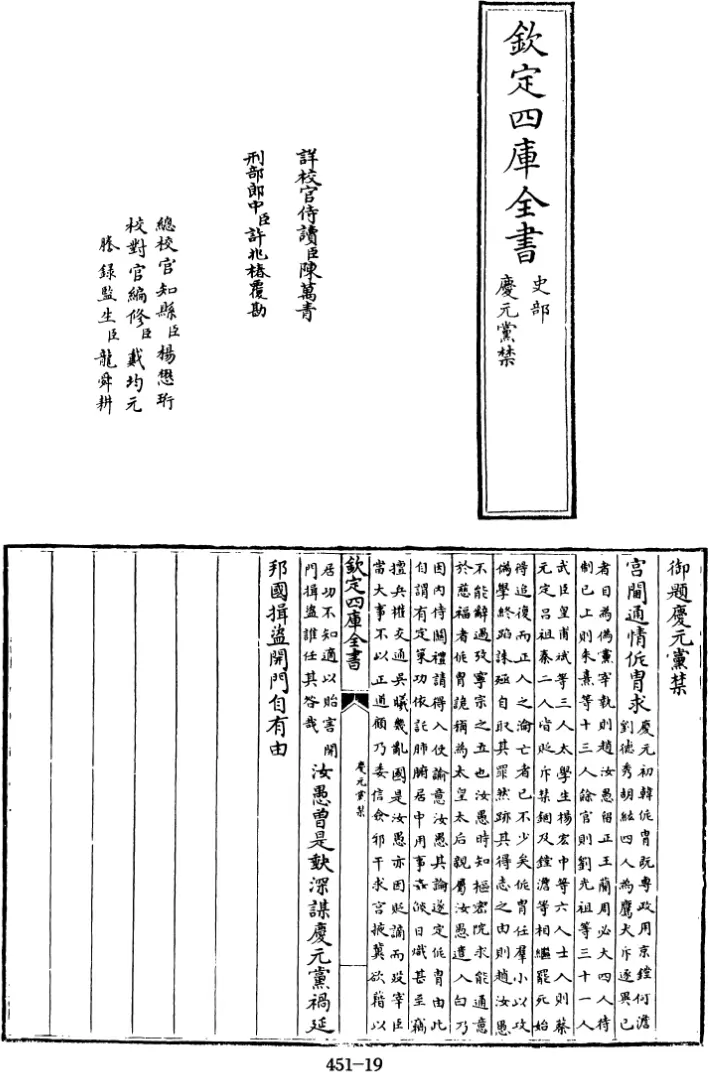 欽定四庫全書
史部
慶元黨禁
詳校官侍讀臣陳萬青
刑部郎中臣許兆椿覆勘
總校官知縣臣楊懋珩
校對官編修臣戴均元
謄錄監生臣龍舜耕
御題慶元黨禁
宫闈通情侂胄求
慶元初韓侂胄既專政用京鏜何澹
劉德秀胡紘四人為鷹犬斥逐異己
者目為偽黨宰執則趙汝愚留正王藺周必大四人待
制已上則朱熹等十三人餘官則劉光祖等三十一人
武臣皇甫斌等三人太學生楊宏中等六人士人則蔡
元定呂祖泰二人皆貶斥禁錮及鏜澹等相繼罷死始
得追復而正人之淪亡者已不少矣侂胄任羣小以攻
偽學終蹈誅殛自取其罪然跡其得志之由則趙汝愚
不能辭過攷寧宗之立也汝愚時知樞宻院求能通意
於慈福者侂胄詭稱為太皇太后親屬汝愚遣入白乃
因内侍關禮請得入使諭意汝愚其論遂定侂胄由此
自謂有定策功依託肺腑居中用事姦燄日熾甚至竊
擅兵權交通吳曦幾亂國是汝愚亦困貶謫而歿宰臣
當大事不以正道顧乃委信僉邪干求宫掖冀欲藉以
欽定四庫全書
慶元黨禁
居功不知適以貽害開
門揖盜誰任其咎哉
汝愚曾是欵深謀慶元黨禍延
邦國揖盜開門自有由
451-19